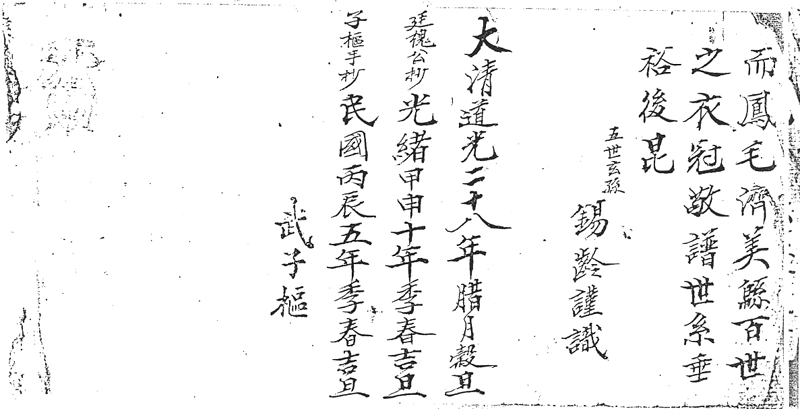 而鳳毛濟美緜百世
之衣冠敬譜世系垂
裕後昆
五世玄孫錫齡謹識
大清道光二十八年腊月穀旦
廷槐公抄光緒甲申十年季春吉旦
子樞手抄民國丙辰五年季春吉旦
武子樞